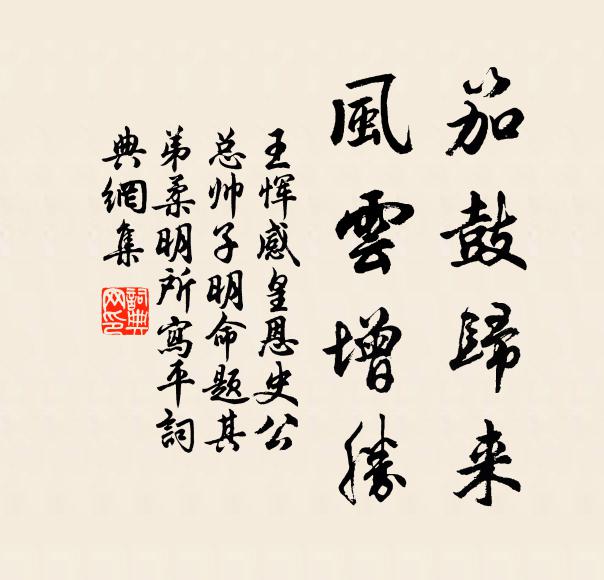 笳鼓歸来
風雲增勝
王恽感皇恩史公
总帅子明命题其
弟柔明所寫平詞
典網集
詞典
网印